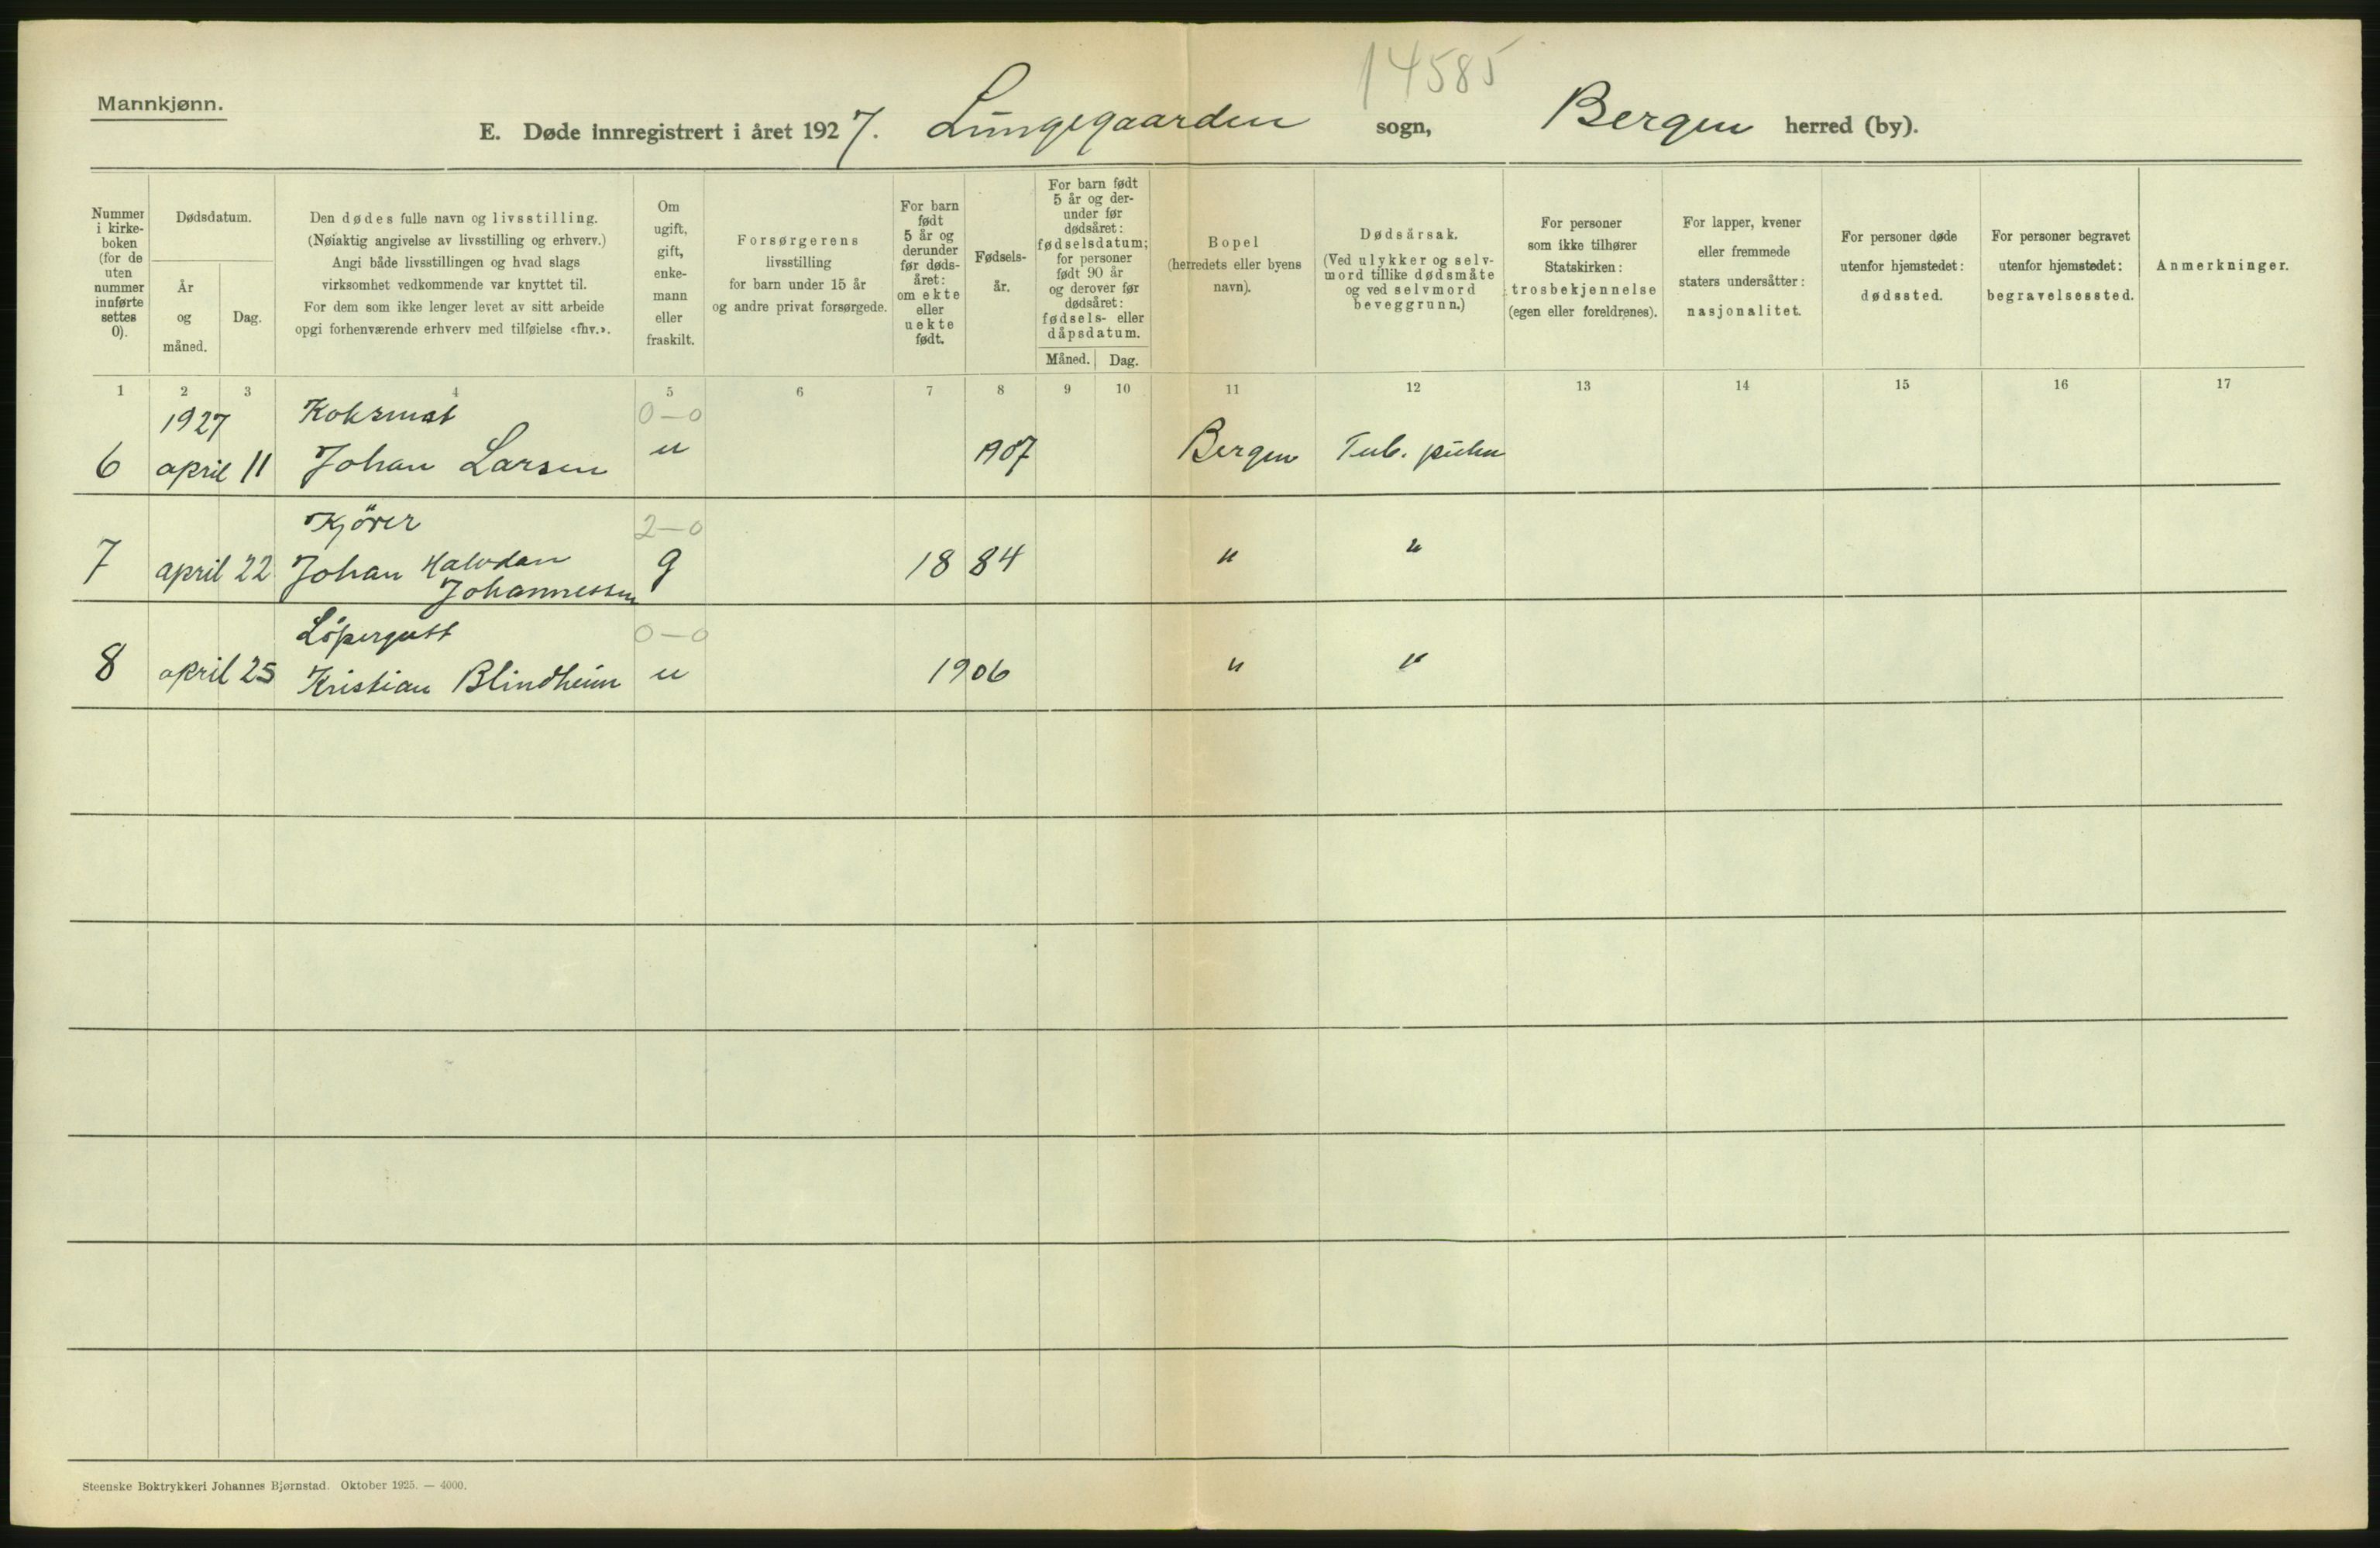 14585
Mannkjønn.
E. Døde innregistrert i året 1927. Lungegaarden sogn, Bergen herred (by).
Nummer i kirke- boken (for de uten nummer innførte settes 0).
Dødsdatum.
År og måned.
Dag.
Den dødes fulle navn og livsstilling.
(Nøiaktig angivelse av livsstilling og erhverv.)
Angi både livsstillingen og hvad slags
virksomhet vedkommende var knyttet til.
For dem som ikke lenger levet av sitt arbeide
opgi forhenværende erhverv med tilføielse «fhv.».
Om ugift, gift, enke- mann eller fraskilt.
Forsørgerens
livsstilling
for barn under 15 år
og andre privat forsørgede.
For barn født 5 år og derunder før døds- året: om ekte eller uekte født.
Fødsels- år.
For barn født 5 år og der- under før dødsåret: fødselsdatum; for personer født 90 år og derover før dødsåret: fødsels- eller dåpsdatum.
Måned. Dag.
Bopel
(herredets eller byens
navn).
Dødsårsak.
(Ved ulykker og selv-
mord tillike dødsmåte
og ved selvmord
beveggrunn.)
For personer
som ikke tilhører
Statskirken:
trosbekjennelse
(egen eller foreldrenes).
For lapper, kvener
eller fremmede
staters undersåtter:
nasjonalitet.
For personer døde
utenfor hjemstedet:
dødssted.
For personer begravet
utenfor hjemstedet:
begravelsessted.
Anmerkninger.
1 2 3 4 5 6 7 8 9 10 11 12 13 14 15 16 17
1927 Koksmat 0-0
6 april 11 Johan Larsen u 1907 Bergen Tub. pulm
Kjörer 2-0
7 april 22 Johan Halvdan g 1884 " "
Johannessen
Löpergutt 0-0
8 april 25 Kristian Blindheim u 1906 " "
Steenske Boktrykkeri Johannes Bjørnstad. Oktober 1925. — 4000.